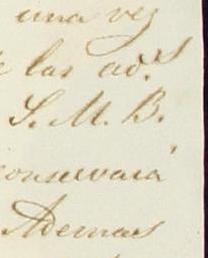 una vez
las ad.s
S. M. B.
conservará
Ademas